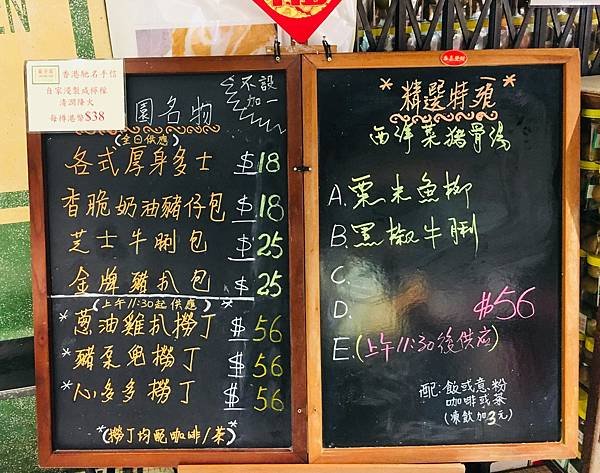 香港馳名手信
自家淹製咸檸檬
清潤降火
每樽港幣$38
不設
加一
園名物
(全日供應)
各式厚身多士 $18
香脆奶油豬仔包 $18
芝士牛脷包 $25
金牌豬扒包 $25
(上午11:30起供應) *
*蔥油雞扒撈丁 $56
*豬柔兒撈丁 $56
*心多多撈丁 $56
*(撈丁均配咖啡/茶)
*精選特頒*
西洋菜豬骨湯
A. 粟米魚柳
B. 黑椒牛脷
C.
D.
$56
E. (上午11:30後供应)
配:飯或意粉
咖啡或茶
(凍飲加3元)